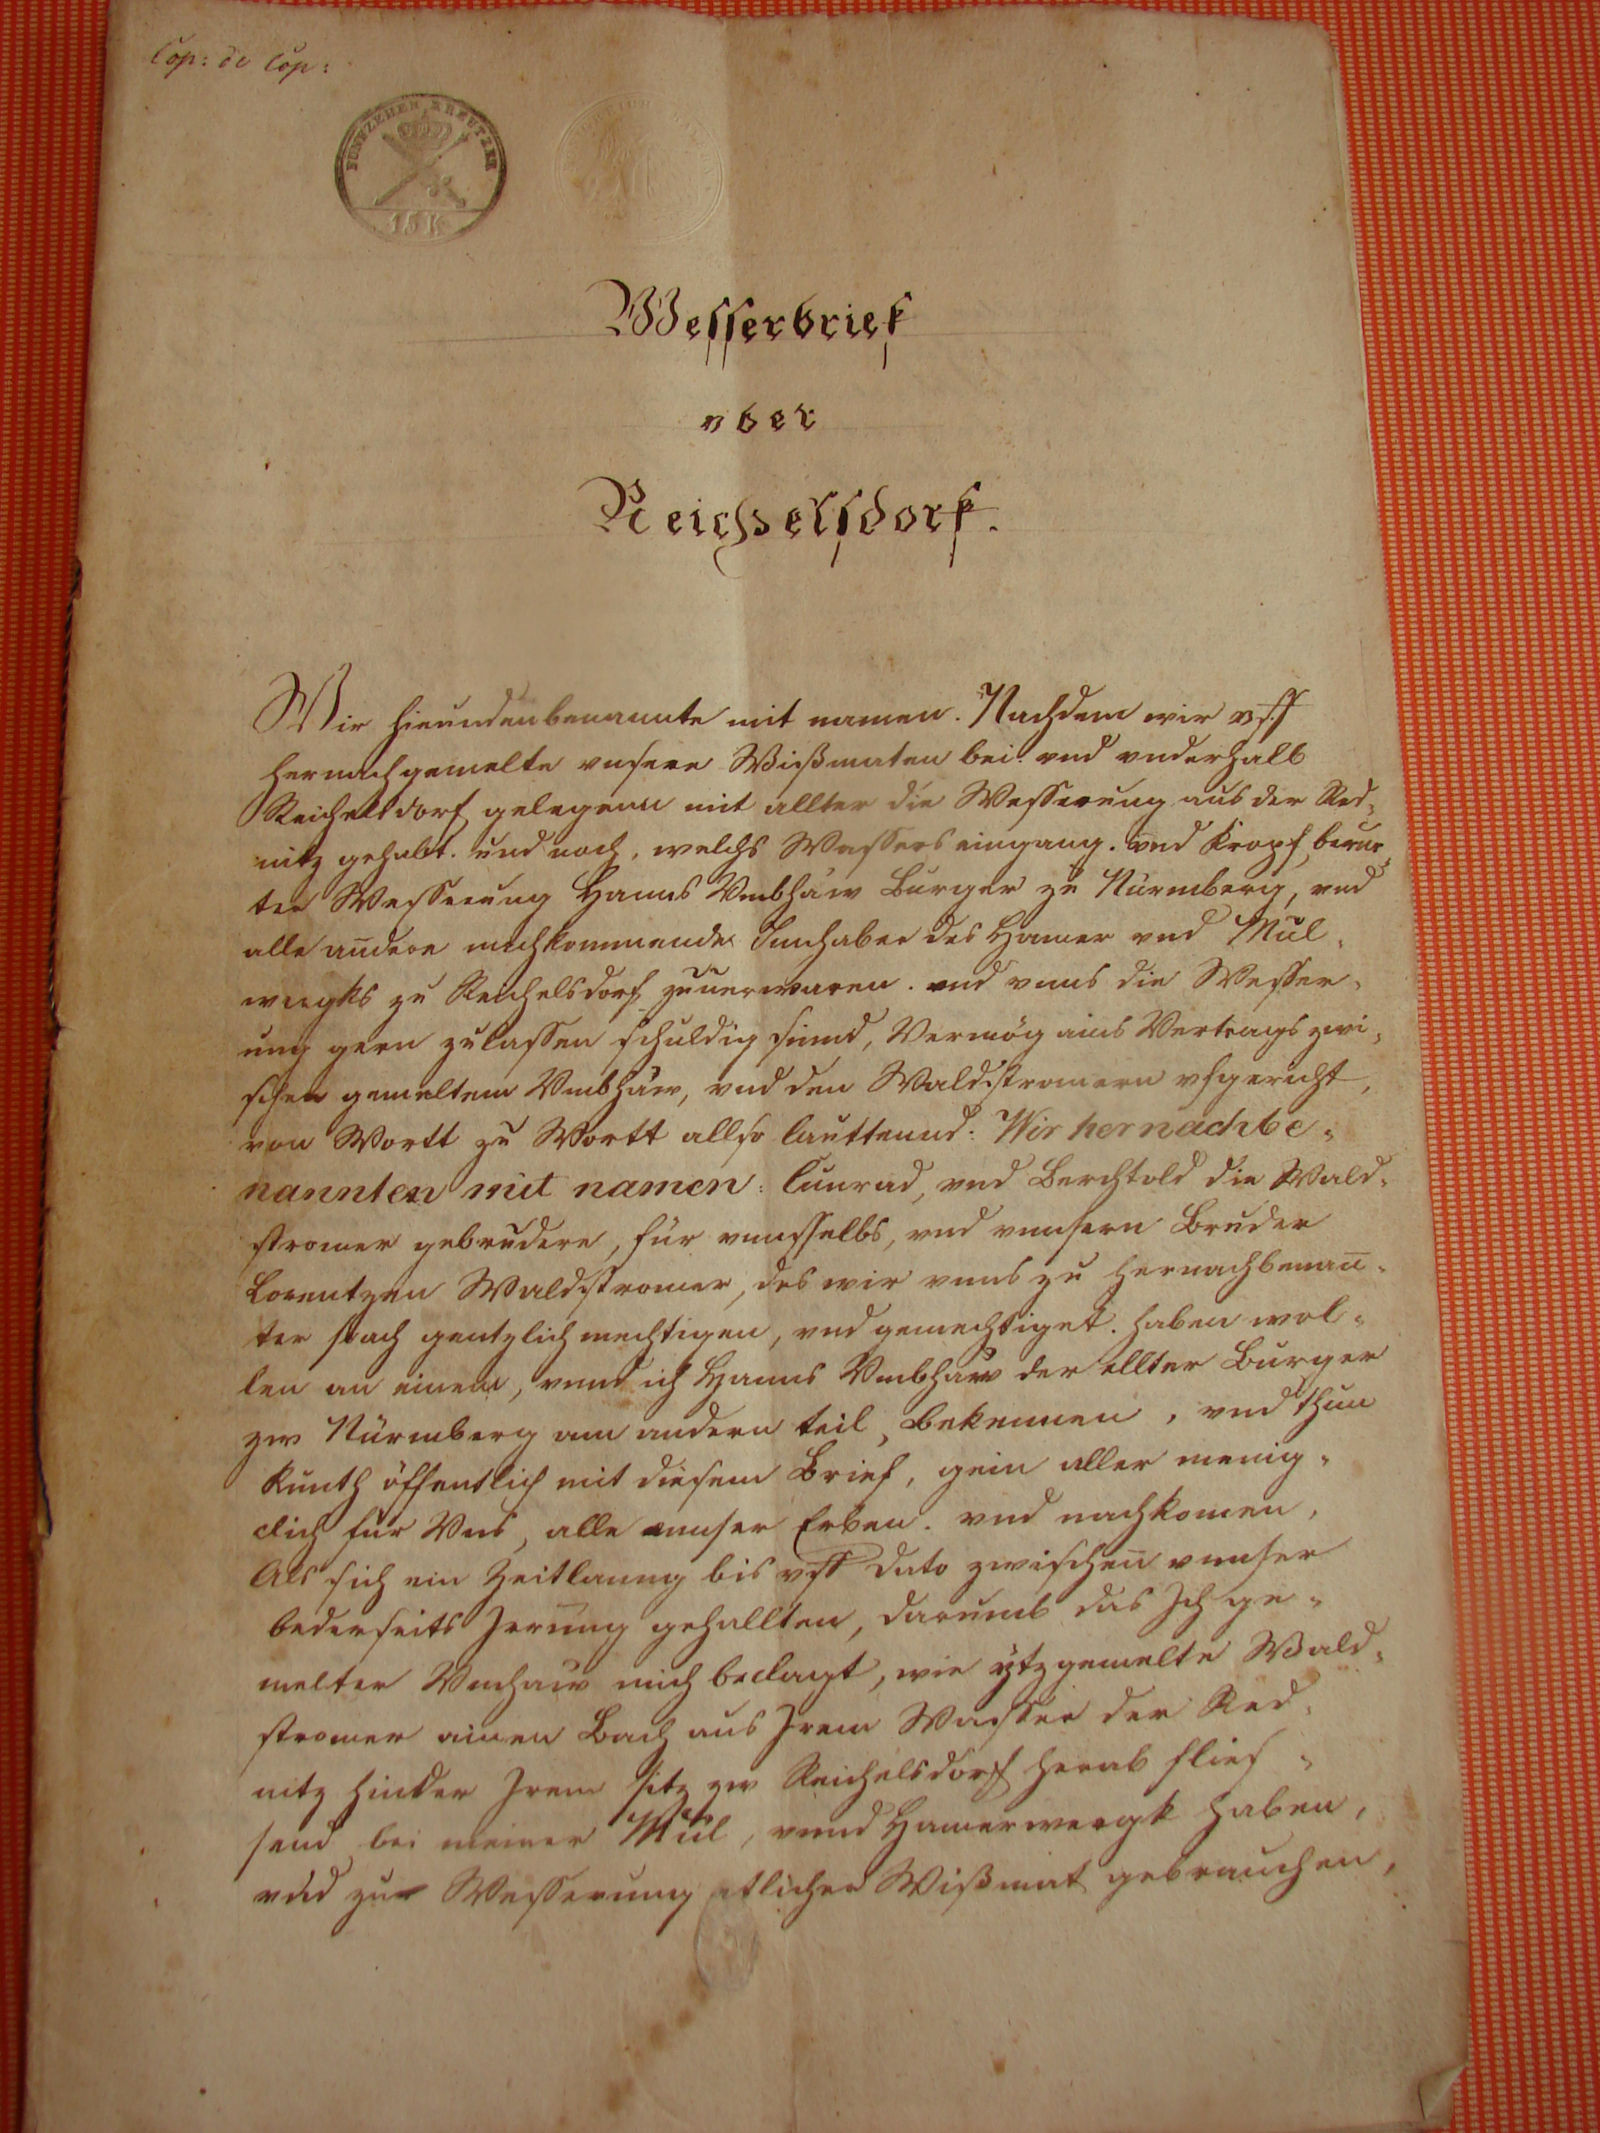 Cop: de Cop:
FUNFZEHEN KREUTZER
15 K
Wesserbrief
vber
Reichelsdorf.
Wir hieundenbenannte mit namen. Nachdem wir vff
hernachgemelte vnsere Wißmaten bei vnd vnderhalb
Reichelsdorf gelegenn mit allter die Wesserung aus der Red¬
nitz gehabt. und noch, welchs Wassers eingang. vnd Kropf berur¬
ter Wesserung Hanns Vmbhäw Burger zu Nürmberg, vnd
alle andere nachkommende Innhaber des Hamer vnd Mül¬
wergks zu Reichelsdorf zuuerwaren. vnd vnns die Wesser¬
ung gern zulassen schuldig sinnd, Vermög ains Vertrags zwi¬
schen gemeltem Vmbhäw, vnd den Waldstromern vfgericht,
von Wortt zu Wortt allso lauttennd: Wir hernachbe¬
nannten mit namen: Cunrad, vnd Berchtold die Wald¬
stromer gebrudere, für vnnsselbs, vnd vnnsern Bruder
Lorentzen Waldstromer, des wir vnns zu hernachbenan̄¬
ter sach gentzlich mechtigen, vnd gemechtiget. haben wol¬
len an einem, vnnd ich Hanns Vmbhaw der ellter Burger
zw Nürmberg am andern teil, bekennen, vnd thun
kunth öffentlich mit diesem Brief, gein aller menig¬
clich für Vns, alle vnnser Erben. vnd nachkomen,
Als sich ein Zeitlanng bis vff dato zwischen vnnser
bederseits Jrrung gehallten, darumb das Jch ge¬
melter Vmhaw mich beclagt, wie ytzgemelte Wald¬
stromer ainen Bach aus Jrem Wasser der Red¬
nitz hinder Jrem sitz zw Reichelsdorf herab flies¬
send bei meiner Mül, vnnd Hamerwergk haben,
vnd zur Wesserung etlicher Wißmat gebrauchen,